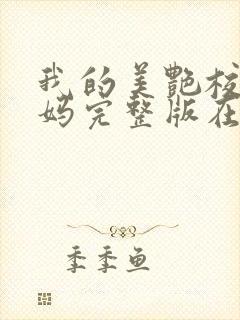 我的美艳校
妈完整版在
季季鱼